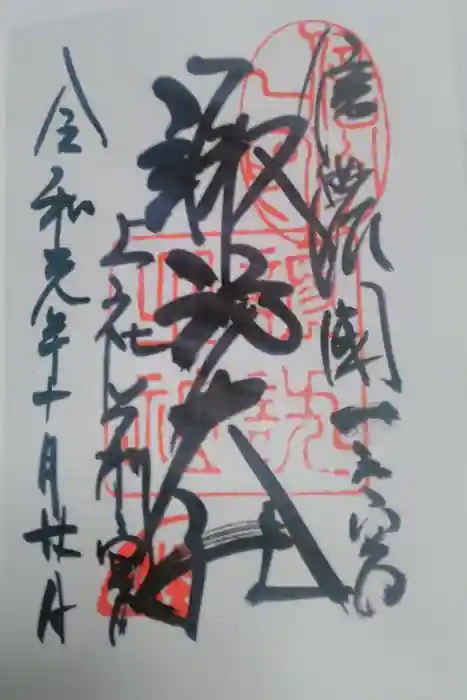 信濃國一之宮
諏訪大社
上社前宮
令和元年十月廿日